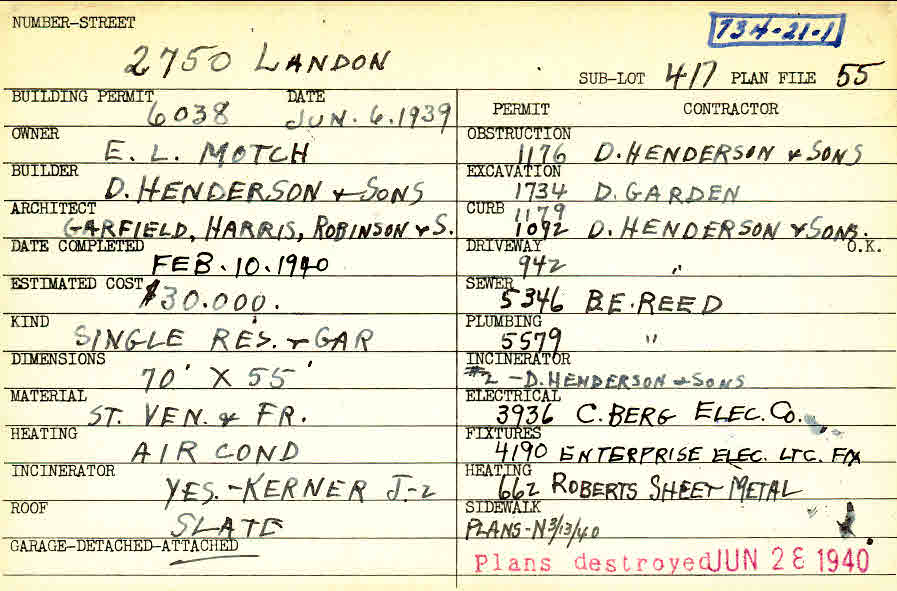 NUMBER-STREET
734-21-1
2750 LANDON
SUB-LOT 417 PLAN FILE 55
BUILDING PERMIT DATE
6038 JUN. 6. 1939
OWNER
E. L. MOTCH
BUILDER
D. HENDERSON & SONS
ARCHITECT
GARFIELD, HARRIS, ROBINSON & S.
DATE COMPLETED
FEB. 10. 1940
ESTIMATED COST
$30.000.
KIND
SINGLE RES. & GAR
DIMENSIONS
70' X 55'
MATERIAL
ST. VEN. & FR.
HEATING
AIR COND
INCINERATOR
YES. - KERNER J-2
ROOF
SLATE
GARAGE-DETACHED-ATTACHED
PERMIT CONTRACTOR
OBSTRUCTION
1176 D. HENDERSON & SONS
EXCAVATION
1734 D. GARDEN
CURB 1179
1092 D. HENDERSON & SONS.
DRIVEWAY O.K.
942 "
SEWER
5346 B.E. REED
PLUMBING
5579 "
INCINERATOR
#2 - D. HENDERSON & SONS
ELECTRICAL
3936 C. BERG ELEC. CO.
FIXTURES
4190 ENTERPRISE ELEC. LTC. FIX
HEATING
662 ROBERTS SHEET METAL
SIDEWALK
PLANS-N 3/13/40
Plans destroyed JUN 28 1940